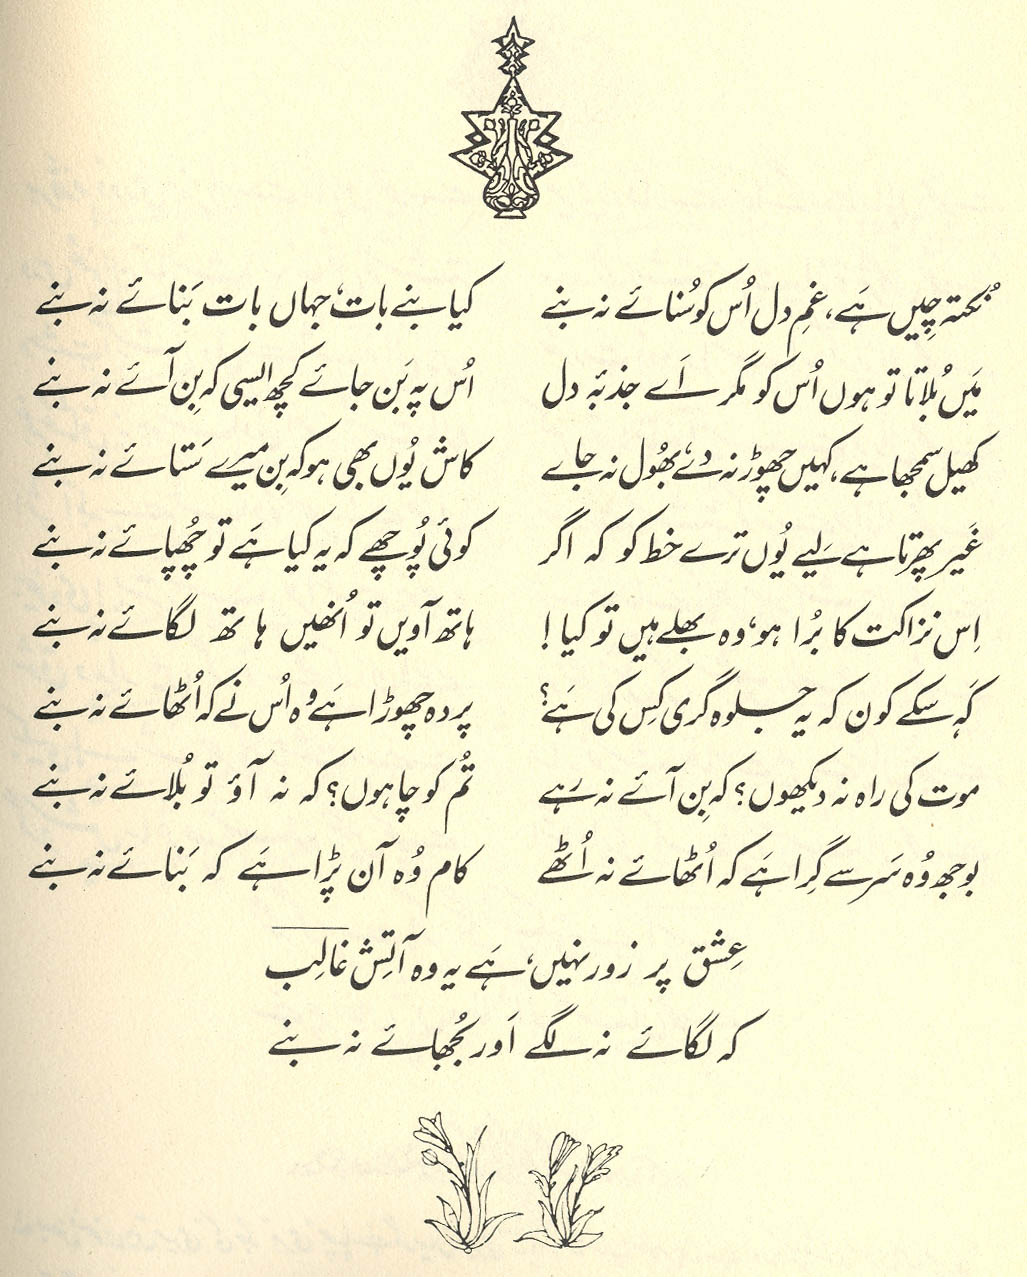 نُکتہ چِیں ہَے، غمِ دل اُس کو سُنائے نہ بنے کیا بنے بات، جہاں بات بَنائے نہ بنے
مَیں بُلاتا تو ہوں اُس کو مگر اَے جذبۂ دل اُس پہ بَن جائے کچھ ایسی کہ بِن آئے نہ بنے
کھیل سمجھا ہے، کہیں چھوڑ نہ دے، بھُول نہ جاے کاش یُوں بھی ہو کہ بِن میرے سَتائے نہ بنے
غَیر پھرتا ہے لیے یُوں ترے خط کو کہ اگر کوئی پُوچھے کہ یہ کیا ہَے تو چھُپائے نہ بنے
اِس نزاکت کا بُرا ہو، وہ بھلے ہیں تو کیا! ہاتھ آویں تو اُنھیں ہاتھ لگائے نہ بنے
کَہ سکے کون کہ یہ جلوہ گری کِس کی ہَے؟ پردہ چھوڑا ہَے وُہ اُس نے کہ اُٹھائے نہ بنے
موت کی راہ نہ دیکھوں؟ کہ بِن آئے نہ رہے تُم کو چاہوں؟ کہ نہ آؤ تو بُلائے نہ بنے
بوجھ وُہ سَر سے گِرا ہَے کہ اُٹھائے نہ اُٹھے کام وُہ آن پڑا ہَے کہ بَنائے نہ بنے
عِشق پر زور نہیں، ہَے یہ وہ آتِش غالِب
کہ لگائے نہ لگے اَور بُجھائے نہ بنے